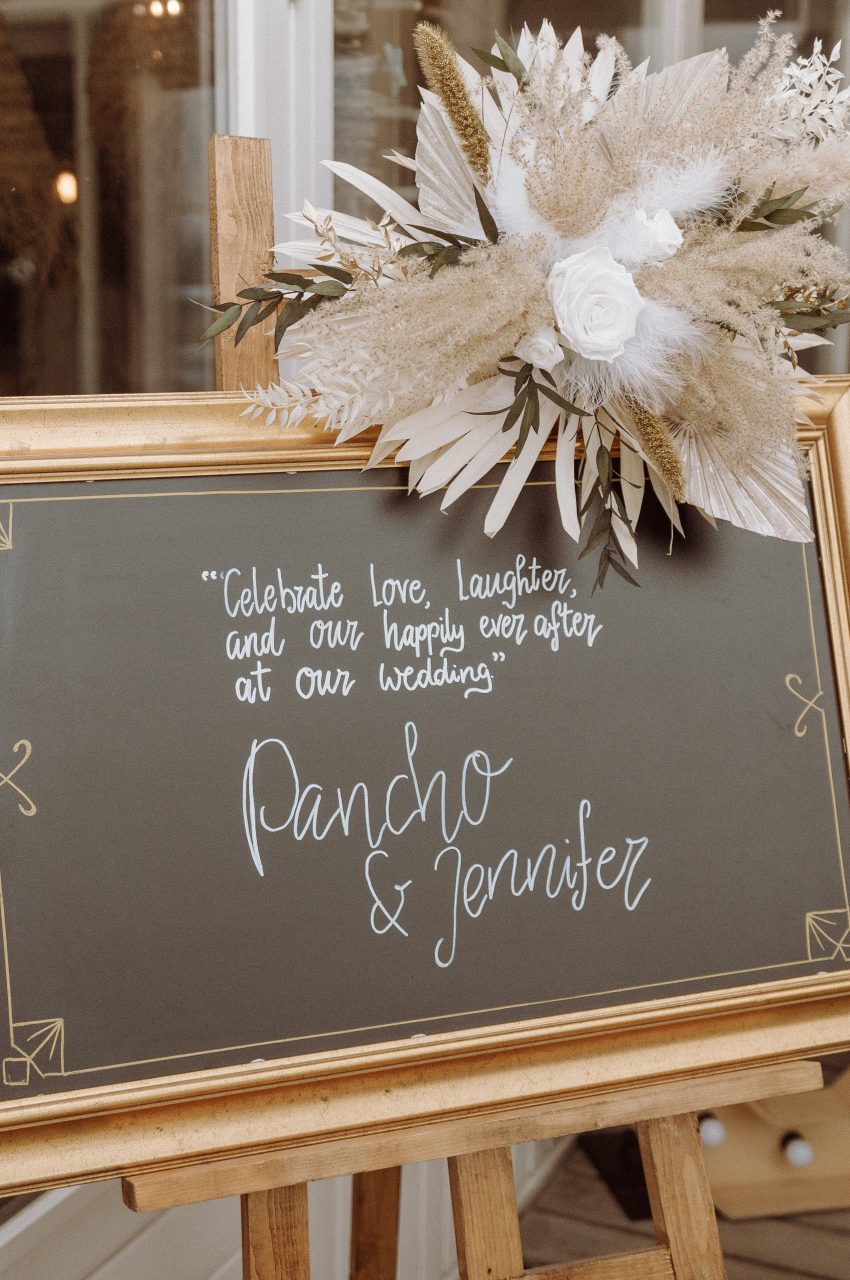 "Celebrate Love, Laughter,
and our happily ever after
at our wedding."
Pancho
& Jennifer